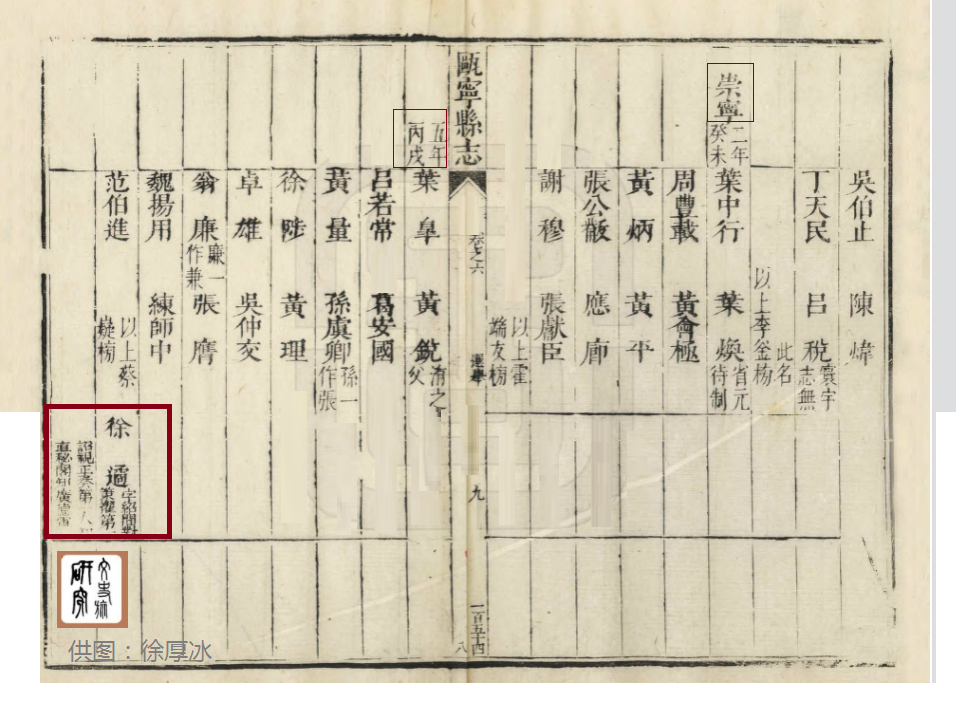 吳伯止 陳煒
丁天民 呂稅 寰宇志無
此名
以上李釜榜
崇寧二年癸未 葉中行 葉煥 省元待制
周豐載 黃極
黃炳 黃平
張公 應廊
謝穆 張獻臣
以上霍端友榜
甌寧縣志 卷之六 選舉 九 一百五十四 八
五年丙戌 葉阜 黃銳 之父
呂若常 葛安國
黃量 孫虞卿 孫一作張
徐陟 黃理
卓雄 吳仲交
翁廉 廉一作兼 張膺
魏揚用 練師中
范伯進 以上蔡嶷榜 徐遹
研究
供图：徐厚冰